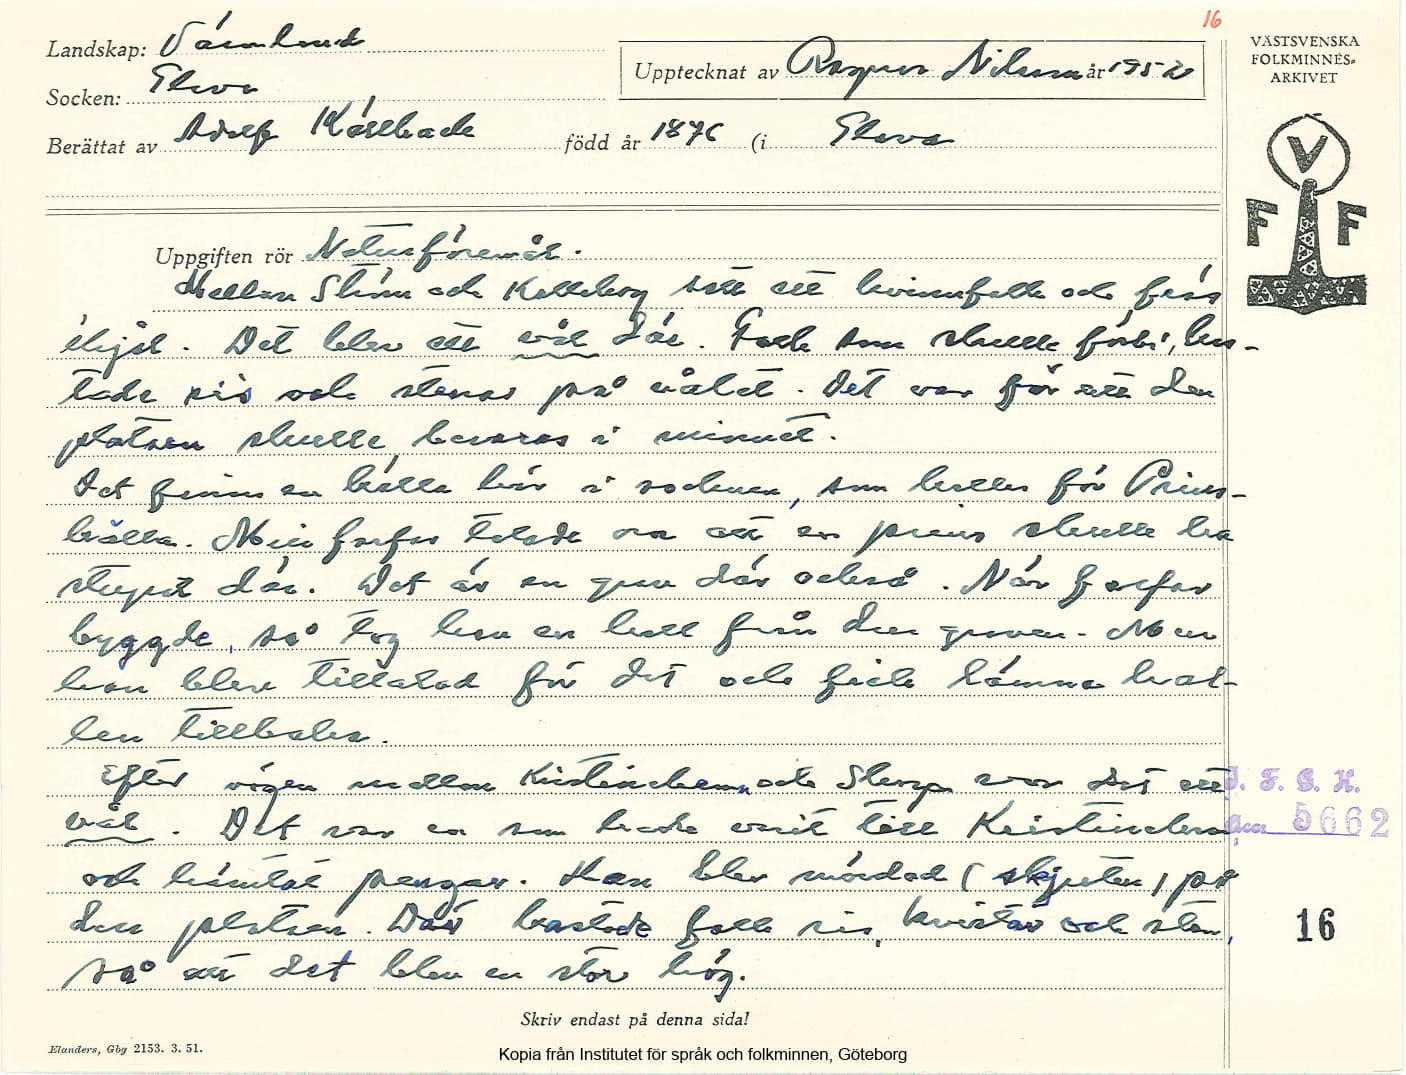 16
Landskap: Värmland
Socken: Elvra
Upptecknat av Ragnar Nilsson år 1952
Berättat av Adolf Källback född år 1876 (i Elvra
VÄSTSVENSKA
FOLKMINNES-
ARKIVET
V
F F
Uppgiften rör Naturföremål.
Mellan Ström och Kolleborg satt ett kvinnfolk och frös
ihjäl. Det blev ett vål där. Folk som skulle förbi, kas-
tade ris och stenar på vålet. Det var för att den
platsen skulle bevaras i minnet.
Det finns en källa här i socknen, som kallas för Prins-
källa. Min farfar talade om att en prins skulle ha
stupat där. Det är en grav där också. När farfar
byggde, så tog han en häll från den graven. Men
han blev tilltalad för det och fick lämna häl-
len tillbaka.
Efter vägen mellan Kristinehamn och Skarp var det ett
vål. Det var en som hade varit till Kristinehamn
och hämtat pengar. Han blev mördad (skjuten) på
den platsen. Där kastade folk ris, kvistar och sten,
så att det blev en stor hög.
I. F. G. H.
Acc. 5662
16
Skriv endast på denna sida!
Elanders, Gbg 2153. 3. 51.
Kopia från Institutet för språk och folkminnen, Göteborg